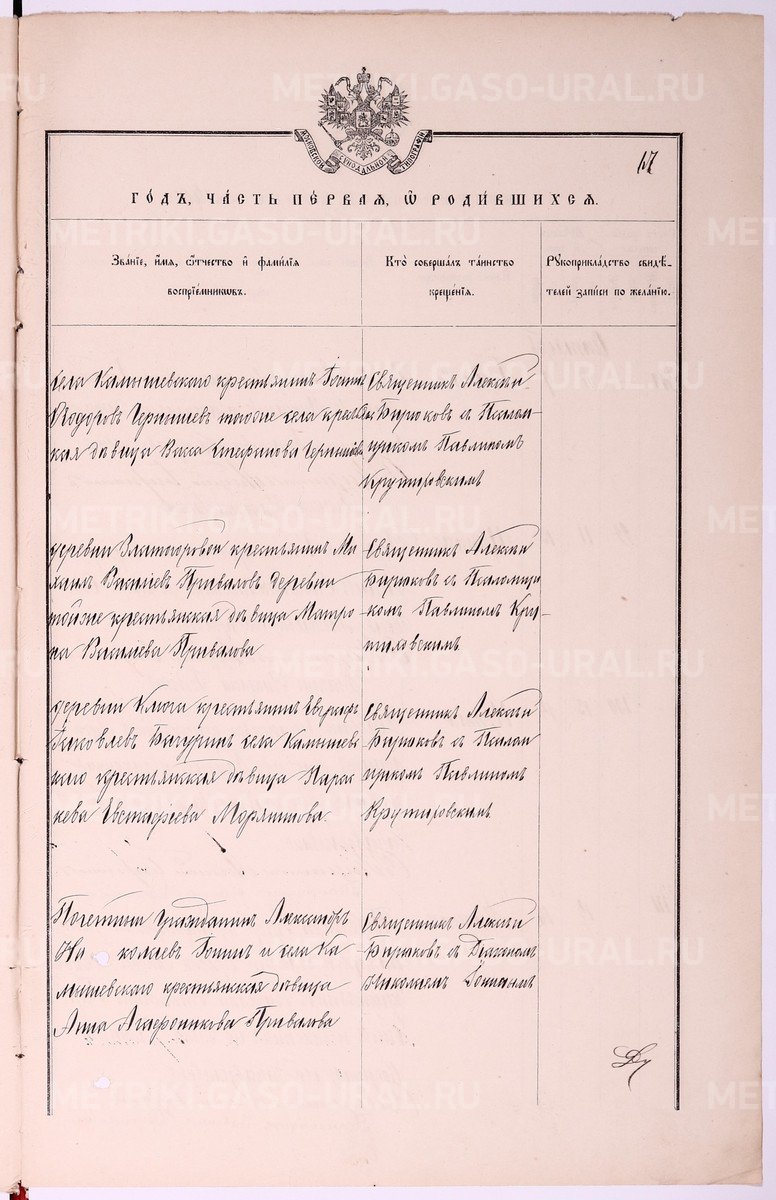 МОСКОВСКОЙ СѴНОДАЛЬНОЙ ТИПОГРАФІИ
17
ГО́ДЪ, ЧА́СТЬ ПЕ́РВАЯ, Ѽ РОДИ́ВШИХСЯ.
Зва́нїе, и҆́мя, ѻ҆́тчество и҆ фами́лїя
воспрїе́мниковъ.
Кто̀ соверша́лъ та́инство
креще́нїя.
Рꙋкоприкла́дство свидѣ́-
телей за́писи по жела́нїю.
села Камышевскаго крестьянинъ
Ѳодоровъ Чернышев тогоже села крестьян
ская дѣвица Васса Стефанова Чернышева
Священникъ Алексѣй
Бирюковъ съ Псалом-
щикомъ Павлиномъ
Крутиховскимъ
деревни Златогоровой крестьянинъ Ми
хаилъ Василіевъ Приваловъ деревни
тойже крестьянская дѣвица Матро
на Василева Привалова
Священникъ Алексѣй
Бирюковъ съ Псаломщи
комъ Павлиномъ Кру-
тиховскимъ
деревни Ключи крестьянинъ Евграфъ
Яковлевъ Бачуринъ села Камышев
скаго крестьянская дѣвица Парас
кева Евстафіева
Священникъ Алексѣй
Бирюковъ съ Псалом
щикомъ Павлиномъ
Крутиховскимъ
Почетный гражданинъ Александръ
Ни колаевъ и села Ка
мышевскаго крестьянская дѣвица
Анна Агафоникова Привалова
Священникъ Алексѣй
Бирюковъ съ Діакономъ
Николаемъ
METRIKI.GASO-URAL.RU